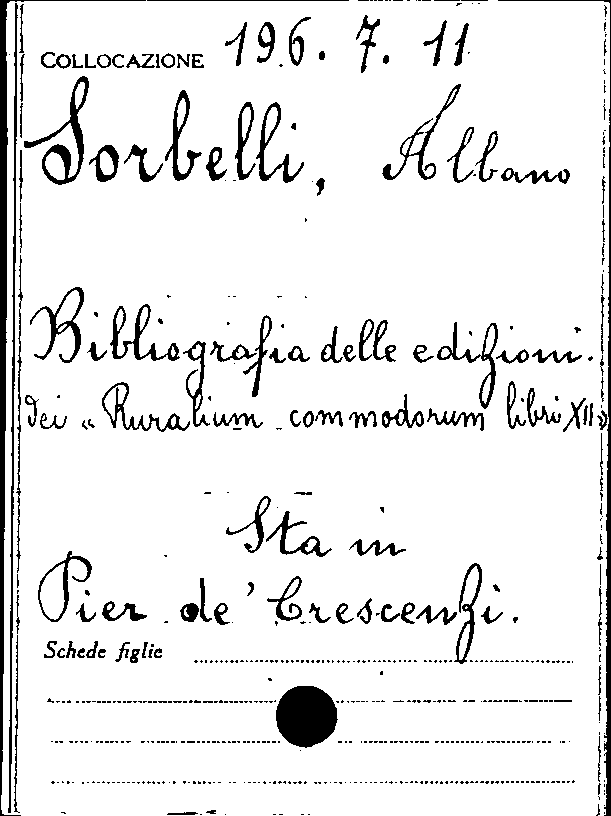 COLLOCAZIONE 196. 7. 11
Sorbelli, Albano
Bibliografia delle edizioni.
dei « Ruralium commodorum libri XII»
Sta in
Pier de' Crescenzi.
Schede figlie